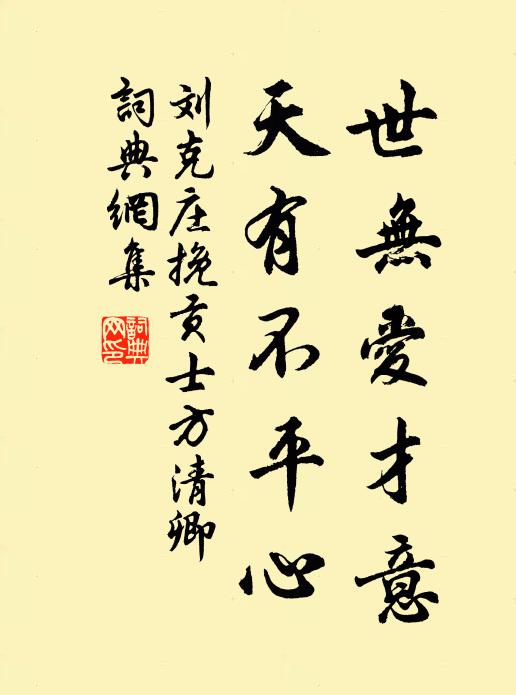 世無愛才意
天有不平心
刘克庄挽贡士方清卿
詞典網集
詞典网印